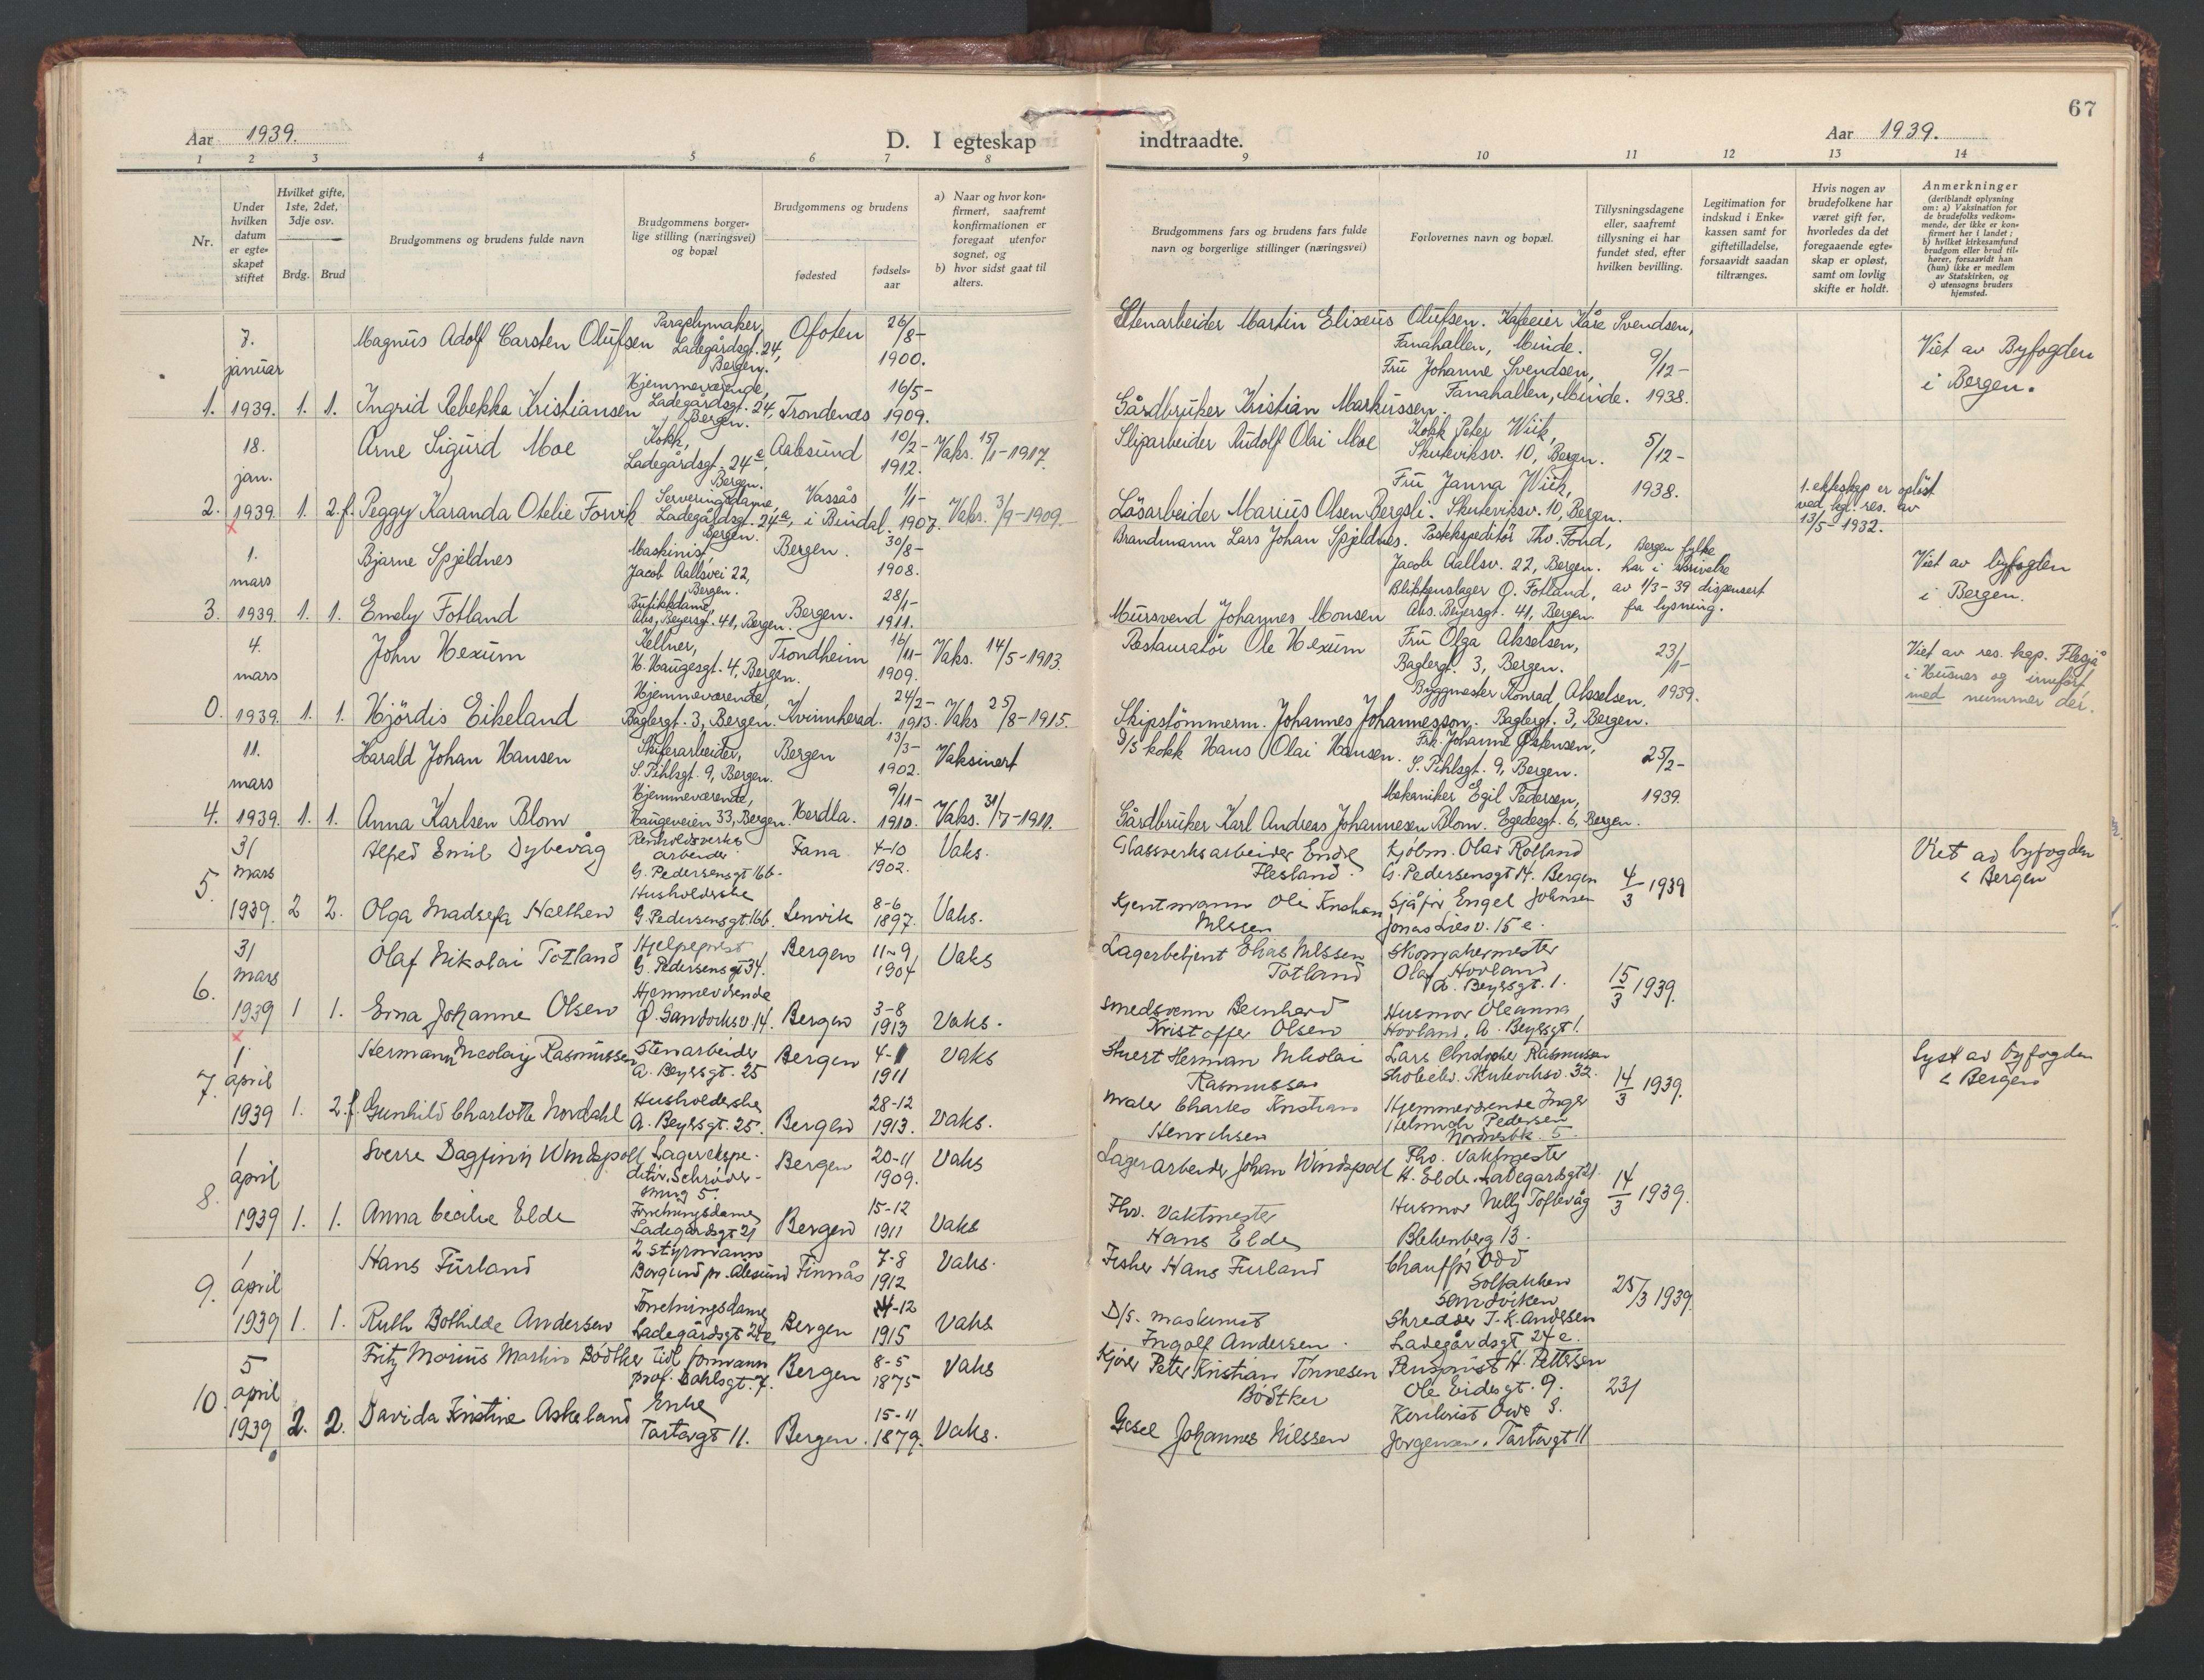 67
Aar 1939.
D. I egteskap
indtraadte.
Aar 1939.
1 2 3 4 5 6 7 8
9 10 11 12 13 14
Nr.
Under hvilken datum er egteskapet stiftet
Hvilket gifte, 1ste, 2det, 3dje osv.
Brdg. Brud
Brudgommens og brudens fulde navn
Brudgommens borgerlige stilling (næringsvei) og bopæl
Brudgommens og brudens
fødested
fødselsaar
a) Naar og hvor konfirmert, saafremt konfirmationen er foregaat utenfor sognet, og
b) hvor sidst gaat til alters.
Brudgommens fars og brudens fars fulde navn og borgerlige stillinger (næringsvei)
Forlovernes navn og bopæl.
Tillysningsdagene eller, saafremt tillysning ei har fundet sted, efter hvilken bevilling.
Legitimation for indskud i Enkekassen samt for giftetilladelse, forsaavidt saadan tiltrænges.
Hvis nogen av brudefolkene har været gift før, hvorledes da det foregaaende egteskap er opløst, samt om lovlig skifte er holdt.
Anmerkninger (deriblandt oplysning om: a) Vaksination for de brudefolks vedkommende, der ikke er konfirmert her i landet; b) hvilket kirkesamfund brudgom eller brud tilhører, forsaavidt han (hun) ikke er medlem av Statskirken, og c) utensogns bruders hjemsted.
1. 7. januar 1939. 1. 1.
Magnus Adolf Carsten Olufsen
Paraplymaker, Ladegårdsgt. 24, Bergen.
Ofoten 26/8- 1900.
Stenarbeider Martin Eliseus Olufsen.
Kafeeier Kåre Svendsen, Fanahallen, Minde.
Fru Johanne Svendsen, Fanahallen, Minde.
9/12- 1938.
Viet av Byfogden i Bergen.
Ingrid Rebekka Kristiansen
Hjemmeværende, Ladegårdsgt. 24, Bergen.
Trondenes 16/5- 1909.
Gårdbruker Kristian Markussen.
2. 18. jan. 1939. 1. 2.f.
Arne Sigurd Moe
Kokk, Ladegårdsgt. 24e, Bergen.
Aalesund 10/2- 1912. Vaks. 15/1-1917.
Sliparbeider Rudolf Olai Moe
Kokk Peter Wiik, Skuteviksv. 10, Bergen.
Fru Janna Wiik, Skuteviksv. 10, Bergen.
5/12- 1938.
1. ekteskap er opløst ved kgl. res. av 13/5-1932.
Peggy Karanda Otelie Forvik
Serveringsdame, Ladegårdsgt. 24a, Bergen.
Vassås i Bindal. 1/1- 1907. Vaks. 3/9-1909.
Løsarbeider Marius Olsen Bergsli.
3. 1. mars 1939. 1. 1.
Bjarne Spjeldnes
Maskinist, Jacob Aallsvei 22, Bergen.
Bergen. 30/8- 1908.
Brandmann Lars Johan Spjeldnes.
Postekspeditör Thv. Fond, Jacob Aallsv. 22, Bergen.
Blikkenslager Q. Fotland, Abs. Beyersgt. 41, Bergen.
Bergen fylke har i skrivelse av 1/3-39 dispensert fra lysning.
Viet av byfogden i Bergen.
Emely Fotland
Butikkdame, Abs. Beyersgt. 41, Bergen.
Bergen. 28/1- 1911.
Mursvend Johannes Monsen
0. 4. mars 1939. 1. 1.
John Hexum
Kellner, H. Haugesgt. 4, Bergen.
Trondheim 16/11- 1909. Vaks. 14/5-1913.
Restauratör Ole Hexum
Fru Olga Akselsen, Baglergt. 3, Bergen.
Byggmester Konrad Akselsen, Baglergt. 3, Bergen.
23/1- 1939.
Viet av res. kap. Flesjå i Husnes og innfört med nummer dér.
Hjördis Eikeland
Hjemmeværende, Baglergt. 3, Bergen.
Kvinnherad. 24/2- 1913. Vaks 25/8-1915.
Skipstömmerm. Johannes Johannesson.
4. 11. mars 1939. 1. 1.
Harald Johan Hansen
Skiferarbeider, S. Pihlsgt. 9, Bergen.
Bergen 13/3- 1902. Vaksinert
D/S kokk Hans Olai Hansen.
Frk. Johanne Østensen, S. Pihlsgt. 9, Bergen.
Mekaniker Egil Pedersen, Egedesgt. 6, Bergen.
25/2- 1939.
Anna Karlsen Blom
Hjemmeværende, Haugeveien 33, Bergen.
Herdla. 9/11- 1910. Vaks. 31/7-1911.
Gårdbruker Karl Andreas Johannesen Blom.
5 31 mars 1939. 2 2.
Alfred Emil Dybevåg
Renholdsverks arbeider G. Pedersensgt 16b.
Fana 4-10 1902. Vaks.
Glassverksarbeider Endre Flesland.
Kjölm. Olav Rolland G. Pedersensgt 14. Bergen
Sjåför Engel Johnsen Jonas Liesv. 15 e.
4/3 1939
Viet av byfogden i Bergen
Olga Madsefa Halthen
Husholderske G. Pedersensgt 16b.
Lenvik 8-6 1897. Vaks.
Kjentmann Ole Kristian Nilssen
6. 31 mars 1939 1 1.
Olaf Nikolai Totland
Hjelpeprest G. Pedersensgt 34.
Bergen 11-9 1904 Vaks
Lagerbetjent Elias Nilssen Totland
Skomakermester Olaf Hovland A. Beyersgt. 1.
Husmor Oleanna Hovland, A. Beyersgt 1.
15/3 1939.
Erna Johanne Olsen
Hjemmeværende Ø. Sandviksv. 14.
Bergen 3-8 1913 Vaks.
Smedsvenn Bernhard Kristoffer Olsen
7. 1 april 1939 1. 2.f
Hermann Nicolaij Rasmussen
Stenarbeider A. Beyersgt. 25
Bergen 1911 Vaks
Stuert Herman Nikolai Rasmussen
Lars Christopher Rasmussen Skuteviksv. 32.
Hjemmeværende Inger Helmich Pedersen Nordnesbk. 5.
14/3 1939.
Lyst av byfogden i Bergen
Gunhild Charlotte Nordahl
Husholderske A. Beyersgt. 25.
Bergen 28-12 1913. Vaks.
Maler Charles Kristian Henrichsen
8. 1 april 1939 1. 1.
Sverre Dagfinn Windspoll
Lagerekspeditör, Schröder-smug 5.
Bergen 20-11 1909. Vaks
Lagerarbeider Johan Windspoll
Fhv. Vaktmester H. Elde. Ladegårdsgt 21.
Husmor Nelly Toftevåg Blekenberg 13.
14/3 1939.
Anna Cecilie Elde
Forretningsdame Ladegårdsgt 21
Bergen 15-12 1911 Vaks
Fhv. Vaktmester Hans Elde
9. 1 april 1939 1. 1.
Hans Furland
2 styrmann Borgund pr. Ålesund
Finnås 7-8 1912 Vaks.
Fisker Hans Furland
Chauffør Odd Solbakken Sandviken
Skredder J. K. Andersen Ladegårdsgt 24 e.
25/3 1939.
Ruth Bothilde Andersen
Forretningsdame Ladegårdsgt 24e
Bergen 1915 Vaks
D/S. maskinist Ingolf Andersen.
10. 5 april 1939 2. 2.
Fritz Marius Martin Bödtker
tidl formann prof. Dahlsgt. 7.
Bergen 8-5 1875 Vaks
Kjörer Peter Kristian Tönnesen Bödtker
Pensjonist H. Pettersen Ole Eidesgt. 9.
Jörgensen. Tartargt 11
23/
Davida Kristine Askeland
Enke Tartargt 11.
Bergen. 15-11 1879. Vaks.
Gesel Johannes Nilssen